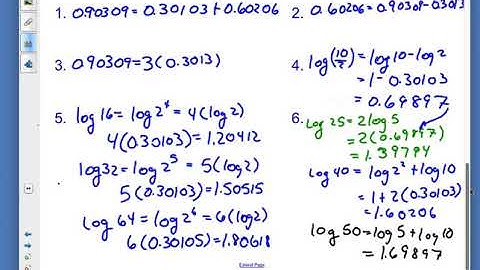 1. 0.90309=0.30103+0.60206
2. 0.60206=0.90309-0.3013
3. 0.90309=3(0.3013)
4. log(10/2)=log10-log2
=1-0.30103
=0.69897
5. log16=log2⁴=4(log2)
4(0.30103)=1.20412
log32=log2⁵=5(log2)
5(0.30103)=1.50515
log64=log2⁶=6(log2)
6(0.30105)=1.80618
6. log25=2log5
=2(0.69897)
=1.39794
log40=log2²+log10
=1+2(0.30103)
=1.60206
log50=log5+log10
=1.69897
Extend Page